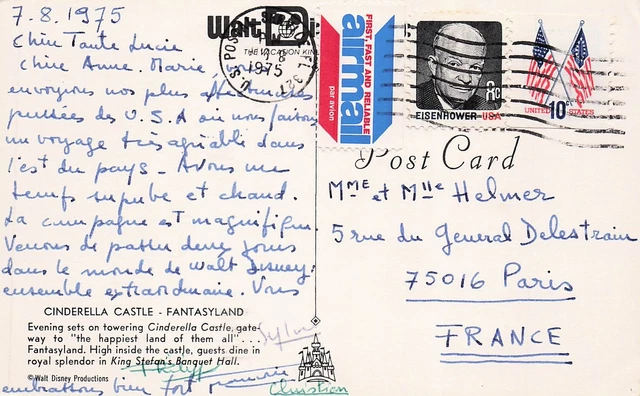 7.8.1975
Chère Tante Lucie
Chère Anne-Marie
envoyons nos plus affectueuses
pensées des U.S.A où nous faisons
un voyage très agréable dans
l'est du pays. Avons un
temps superbe et chaud.
La campagne est magnifique.
Venons de passer deux jours
dans le monde de Walt Disney:
ensemble extraordinaire. Vous
CINDERELLA CASTLE - FANTASYLAND
Evening sets on towering Cinderella Castle, gate-
way to "the happiest land of them all" . . .
Fantasyland. High inside the castle, guests dine in
royal splendor in King Stefan's Banquet Hall.
© Walt Disney Productions
embrassons bien fort
Christian
Walt
THE VACATION KIN
U.S. POS
FL
1975
FIRST, FAST AND RELIABLE
airmail
par avion
8c
EISENHOWER·USA
10c
UNITED STATES
Post Card
MME et Mlle Helmer
5 rue du General Delestraint
75016 Paris
FRANCE